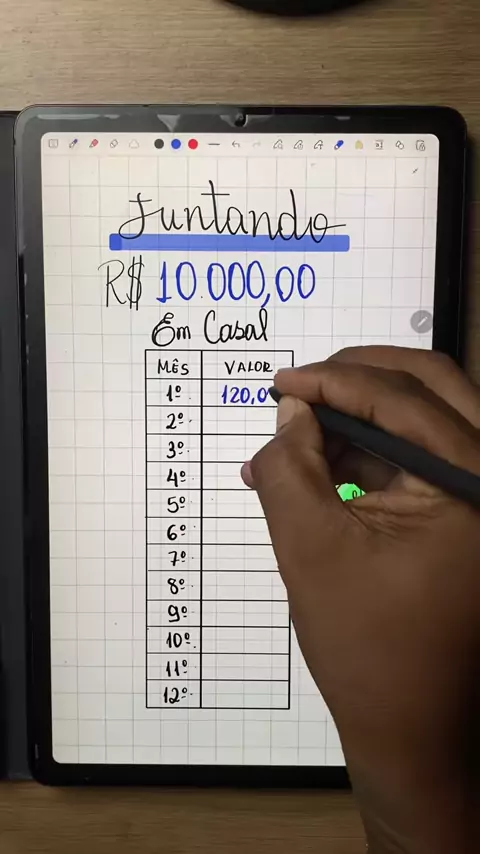 Juntando
R$ 10.000,00
Em Casal
MÊS VALOR
1º 120,0
2º
3º
4º
5º
6º
7º
8º
9º
10º
11º
12º